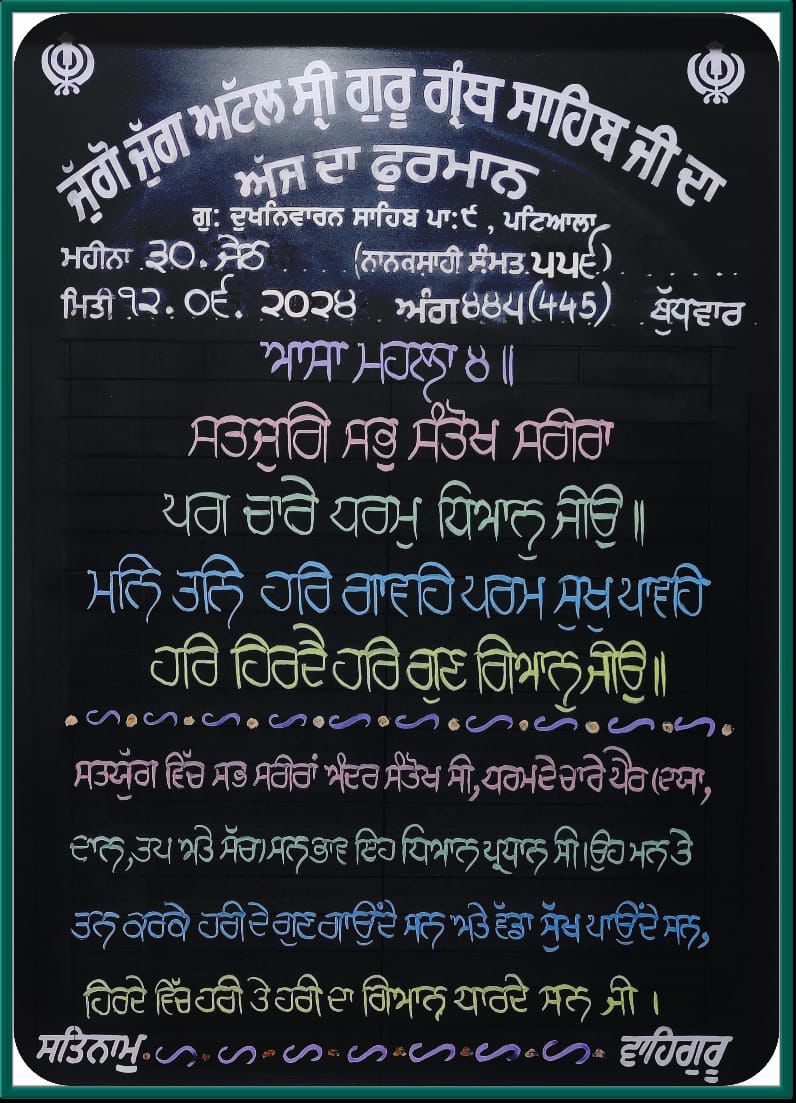 ਜੁੱਗੋ ਜੁੱਗ ਅੱਟਲ ਸ੍ਰੀ ਗੁਰੂ ਗ੍ਰੰਥ ਸਾਹਿਬ ਜੀ ਦਾ
ਅੱਜ ਦਾ ਫੁਰਮਾਨ
ਗੁ: ਦੁਖਨਿਵਾਰਨ ਸਾਹਿਬ ਪਾ:੯ , ਪਟਿਆਲਾ
ਮਹੀਨਾ ੩੦. ਜੇਠ (ਨਾਨਕਸਾਹੀ ਸੰਮਤ ੫੫੬)
ਮਿਤੀ ੧੨. ੦੬. ੨੦੨੪ ਅੰਗ ੪੪੫ (445) ਬੁੱਧਵਾਰ
ਆਸਾ ਮਹਲਾ ੪ ॥
ਸਤਜੁਗਿ ਸਭੁ ਸੰਤੋਖ ਸਰੀਰਾ
ਪਗ ਚਾਰੇ ਧਰਮੁ ਧਿਆਨੁ ਜੀਉ ॥
ਮਨਿ ਤਨਿ ਹਰਿ ਗਾਵਹਿ ਪਰਮ ਸੁਖੁ ਪਾਵਹਿ
ਹਰਿ ਹਿਰਦੈ ਹਰਿ ਗੁਣ ਗਿਆਨੁ ਜੀਉ ॥
ਸਤਯੁੱਗ ਵਿੱਚ ਸਭ ਸਰੀਰਾਂ ਅੰਦਰ ਸੰਤੋਖ ਸੀ, ਧਰਮ ਦੇ ਚਾਰੇ ਪੈਰ (ਦਯਾ,
ਦਾਨ, ਤਪ ਅਤੇ ਸੱਚ) ਸਨ ਭਾਵ ਇਹ ਧਿਆਨ ਪ੍ਰਧਾਨ ਸੀ । ਉਹ ਮਨ ਤੇ
ਤਨ ਕਰਕੇ ਹਰੀ ਦੇ ਗੁਣ ਗਾਉਂਦੇ ਸਨ ਅਤੇ ਵੱਡਾ ਸੁੱਖ ਪਾਉਂਦੇ ਸਨ,
ਹਿਰਦੇ ਵਿੱਚ ਹਰੀ ਤੇ ਹਰੀ ਦਾ ਗਿਆਨ ਧਾਰਦੇ ਸਨ ਜੀ ।
ਸਤਿਨਾਮੁ ਵਾਹਿਗੁਰੂ